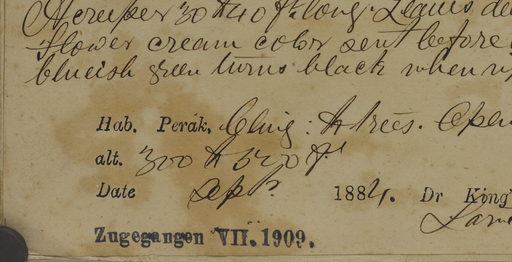 A creeper 30 to 40 ft. long. Leaves de
flower cream color sent before
blueish green turns black when
Hab. Perak, Cling: to trees. Open
alt. 300 to 500 ft.
Date Apl. 1884. Dr King'
Zugegangen VII. 1909.